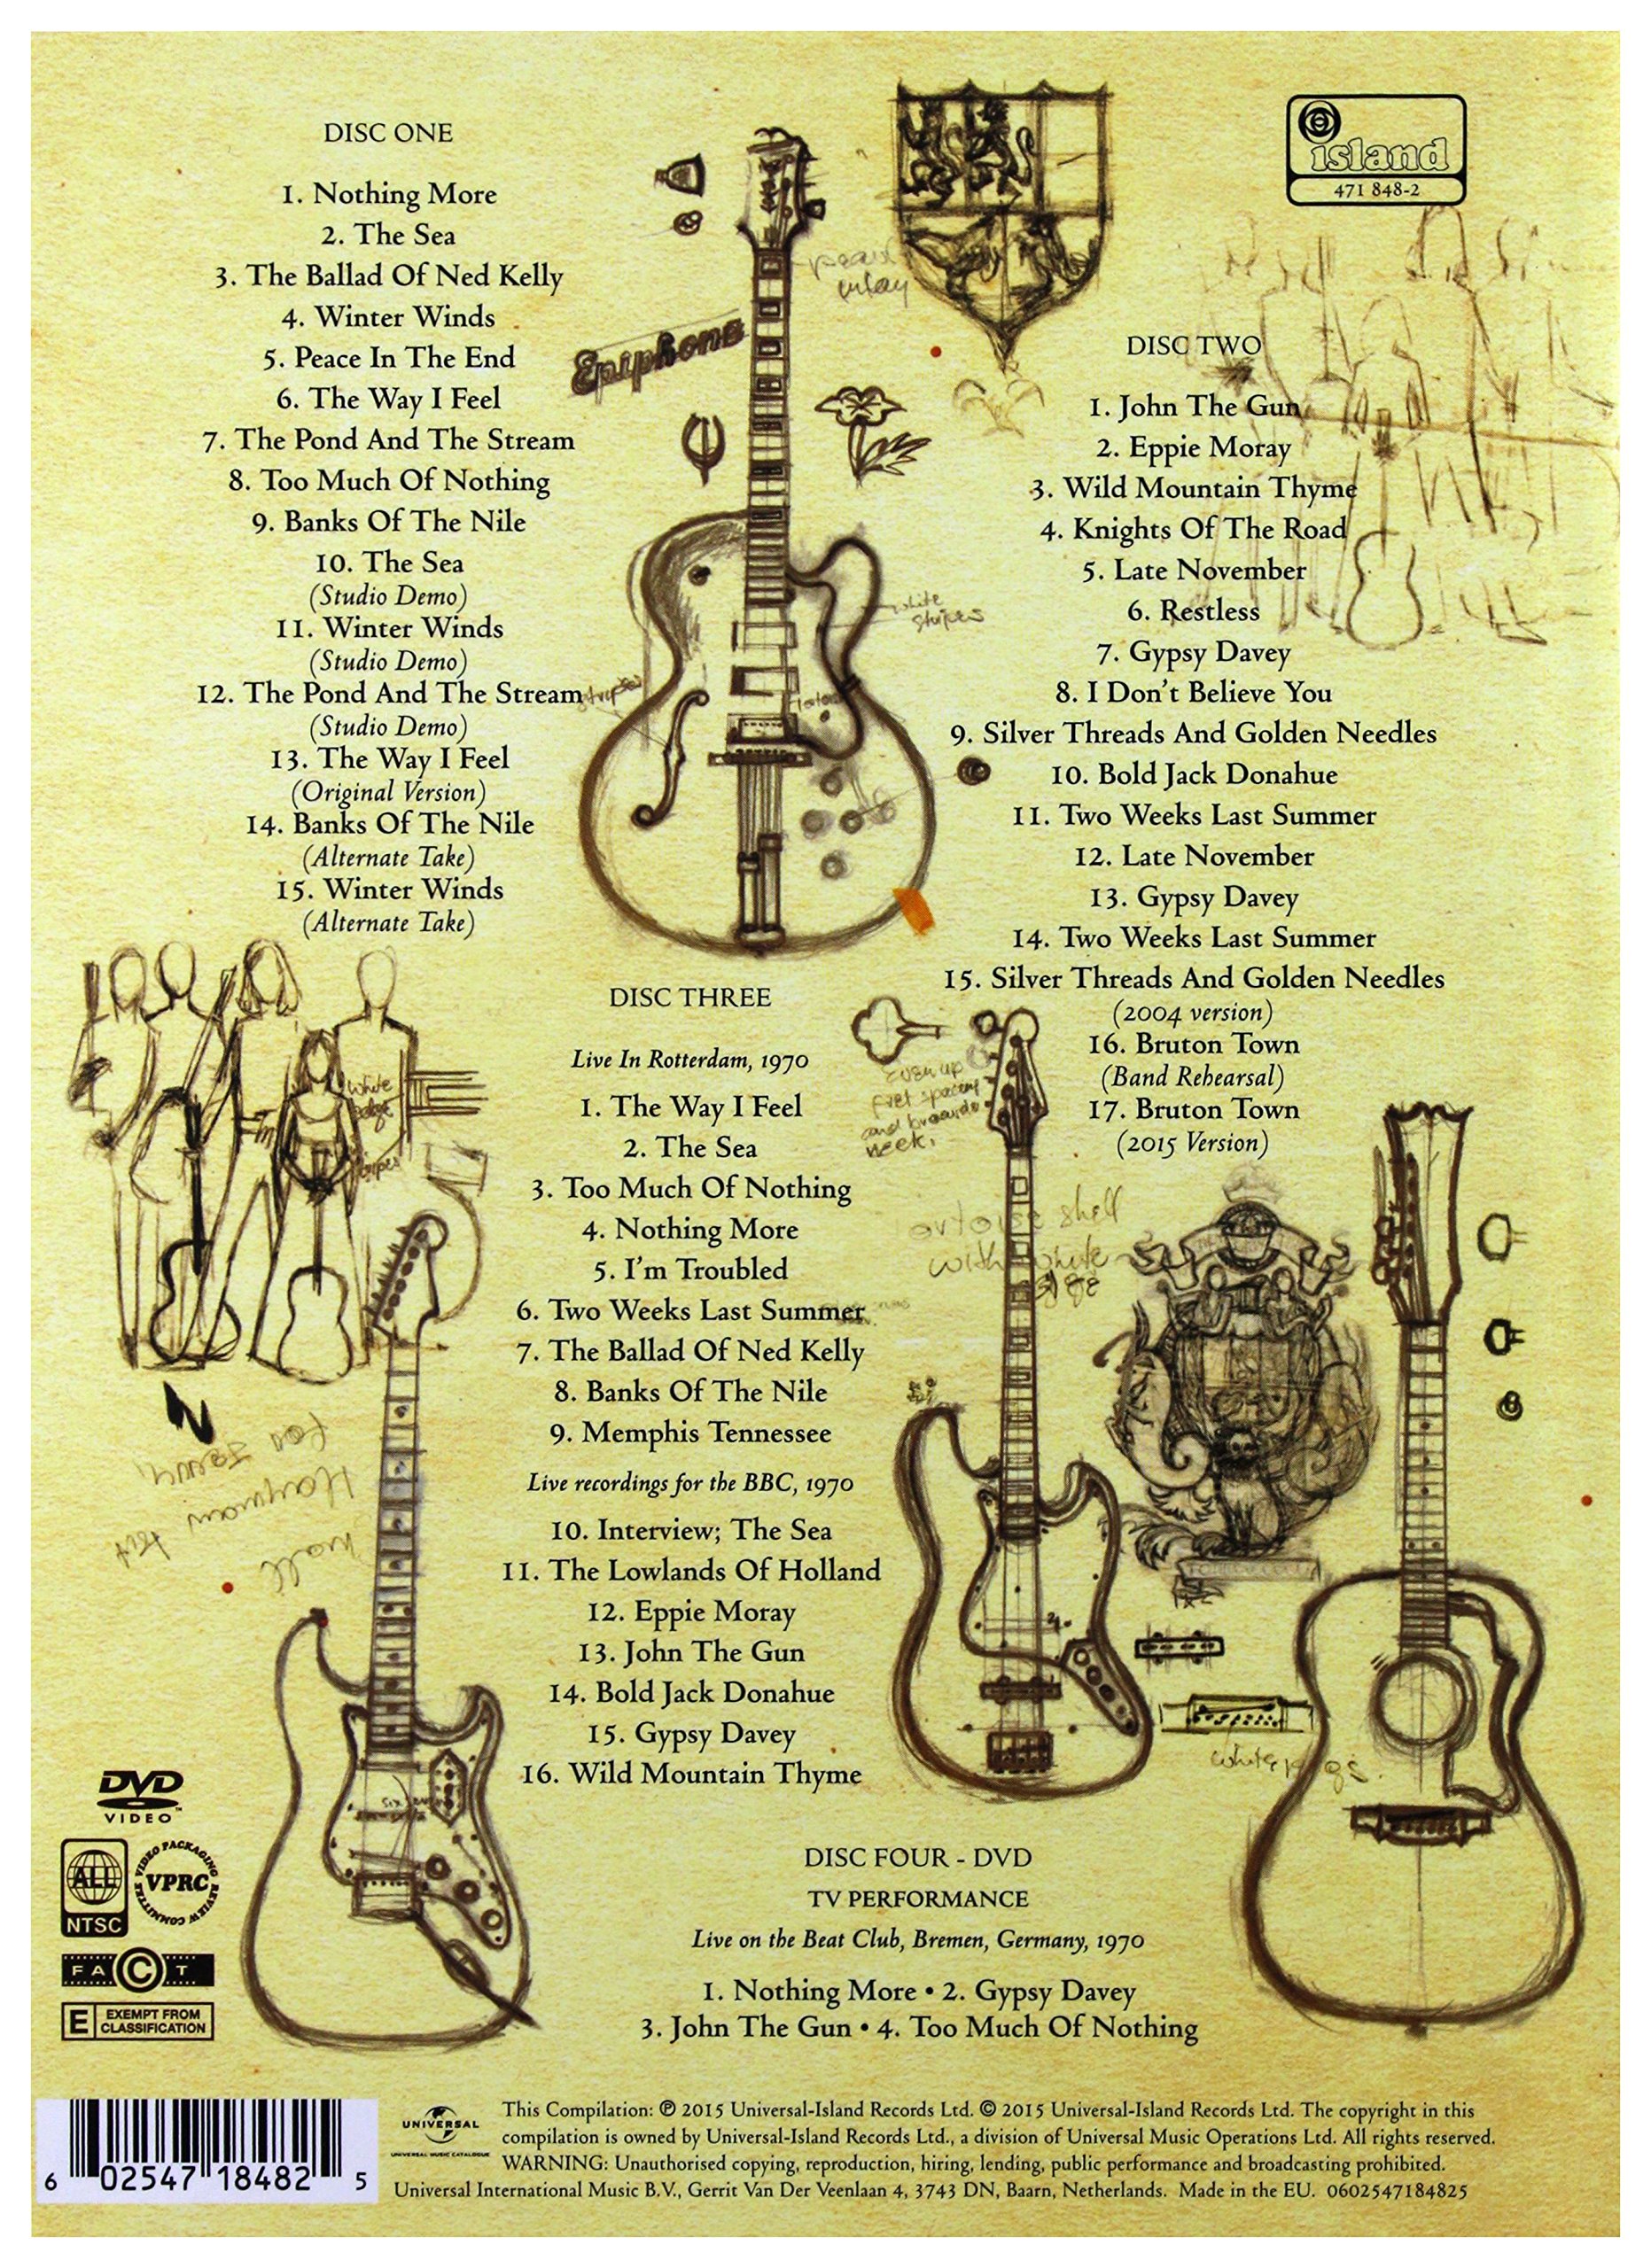 DISC ONE
1. Nothing More
2. The Sea
3. The Ballad Of Ned Kelly
4. Winter Winds
5. Peace In The End
6. The Way I Feel
7. The Pond And The Stream
8. Too Much Of Nothing
9. Banks Of The Nile
10. The Sea
(Studio Demo)
11. Winter Winds
(Studio Demo)
12. The Pond And The Stream
(Studio Demo)
13. The Way I Feel
(Original Version)
14. Banks Of The Nile
(Alternate Take)
15. Winter Winds
(Alternate Take)
Epiphone
pearl
inlay
white
stripes
stripes
island
471 848-2
DISC TWO
1. John The Gun
2. Eppie Moray
3. Wild Mountain Thyme
4. Knights Of The Road
5. Late November
6. Restless
7. Gypsy Davey
8. I Don't Believe You
9. Silver Threads And Golden Needles
10. Bold Jack Donahue
11. Two Weeks Last Summer
12. Late November
13. Gypsy Davey
14. Two Weeks Last Summer
15. Silver Threads And Golden Needles
(2004 version)
16. Bruton Town
(Band Rehearsal)
17. Bruton Town
(2015 Version)
DISC THREE
Live In Rotterdam, 1970
1. The Way I Feel
2. The Sea
3. Too Much Of Nothing
4. Nothing More
5. I'm Troubled
6. Two Weeks Last Summer
7. The Ballad Of Ned Kelly
8. Banks Of The Nile
9. Memphis Tennessee
Live recordings for the BBC, 1970
10. Interview; The Sea
11. The Lowlands Of Holland
12. Eppie Moray
13. John The Gun
14. Bold Jack Donahue
15. Gypsy Davey
16. Wild Mountain Thyme
even up
fret spacing
and
neck.
shell
with white
edge
white
DISC FOUR - DVD
TV PERFORMANCE
Live on the Beat Club, Bremen, Germany, 1970
1. Nothing More • 2. Gypsy Davey
3. John The Gun • 4. Too Much Of Nothing
DVD
VIDEO™
ALL
NTSC
VIDEO PACKAGING REVIEW COMMITTEE
VPRC
FACT
E EXEMPT FROM
CLASSIFICATION
6 02547 18482 5
UNIVERSAL
UNIVERSAL MUSIC CATALOGUE
This Compilation: ℗ 2015 Universal-Island Records Ltd. © 2015 Universal-Island Records Ltd. The copyright in this
compilation is owned by Universal-Island Records Ltd., a division of Universal Music Operations Ltd. All rights reserved.
WARNING: Unauthorised copying, reproduction, hiring, lending, public performance and broadcasting prohibited.
Universal International Music B.V., Gerrit Van Der Veenlaan 4, 3743 DN, Baarn, Netherlands. Made in the EU. 0602547184825